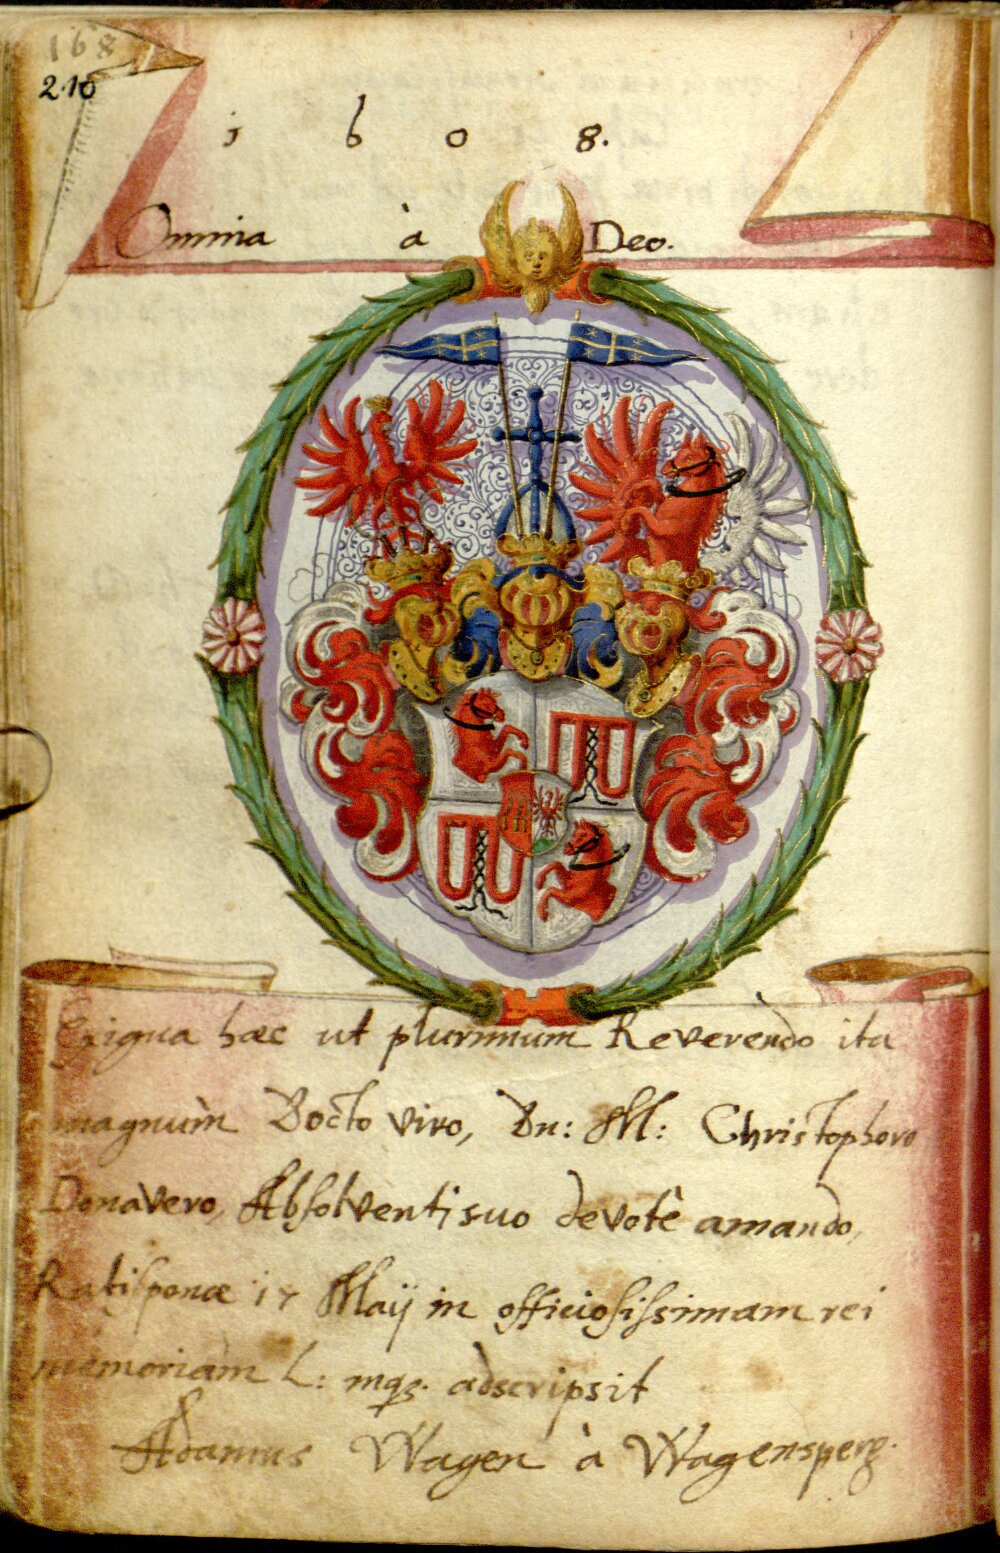 168
210
1 6 0 8.
Omnia à Deo.
Exigua hæc ut plurimum Reverendo ita
magnum̀ Docto viro, Dn: M: Christophoro
Donavero, Absolventi suo devotê amando,
Ratisponæ 17 Maij in officiosissimam rei
memoriam L: mq3. adscripsit
Adamus Wagen à Wagensperg.